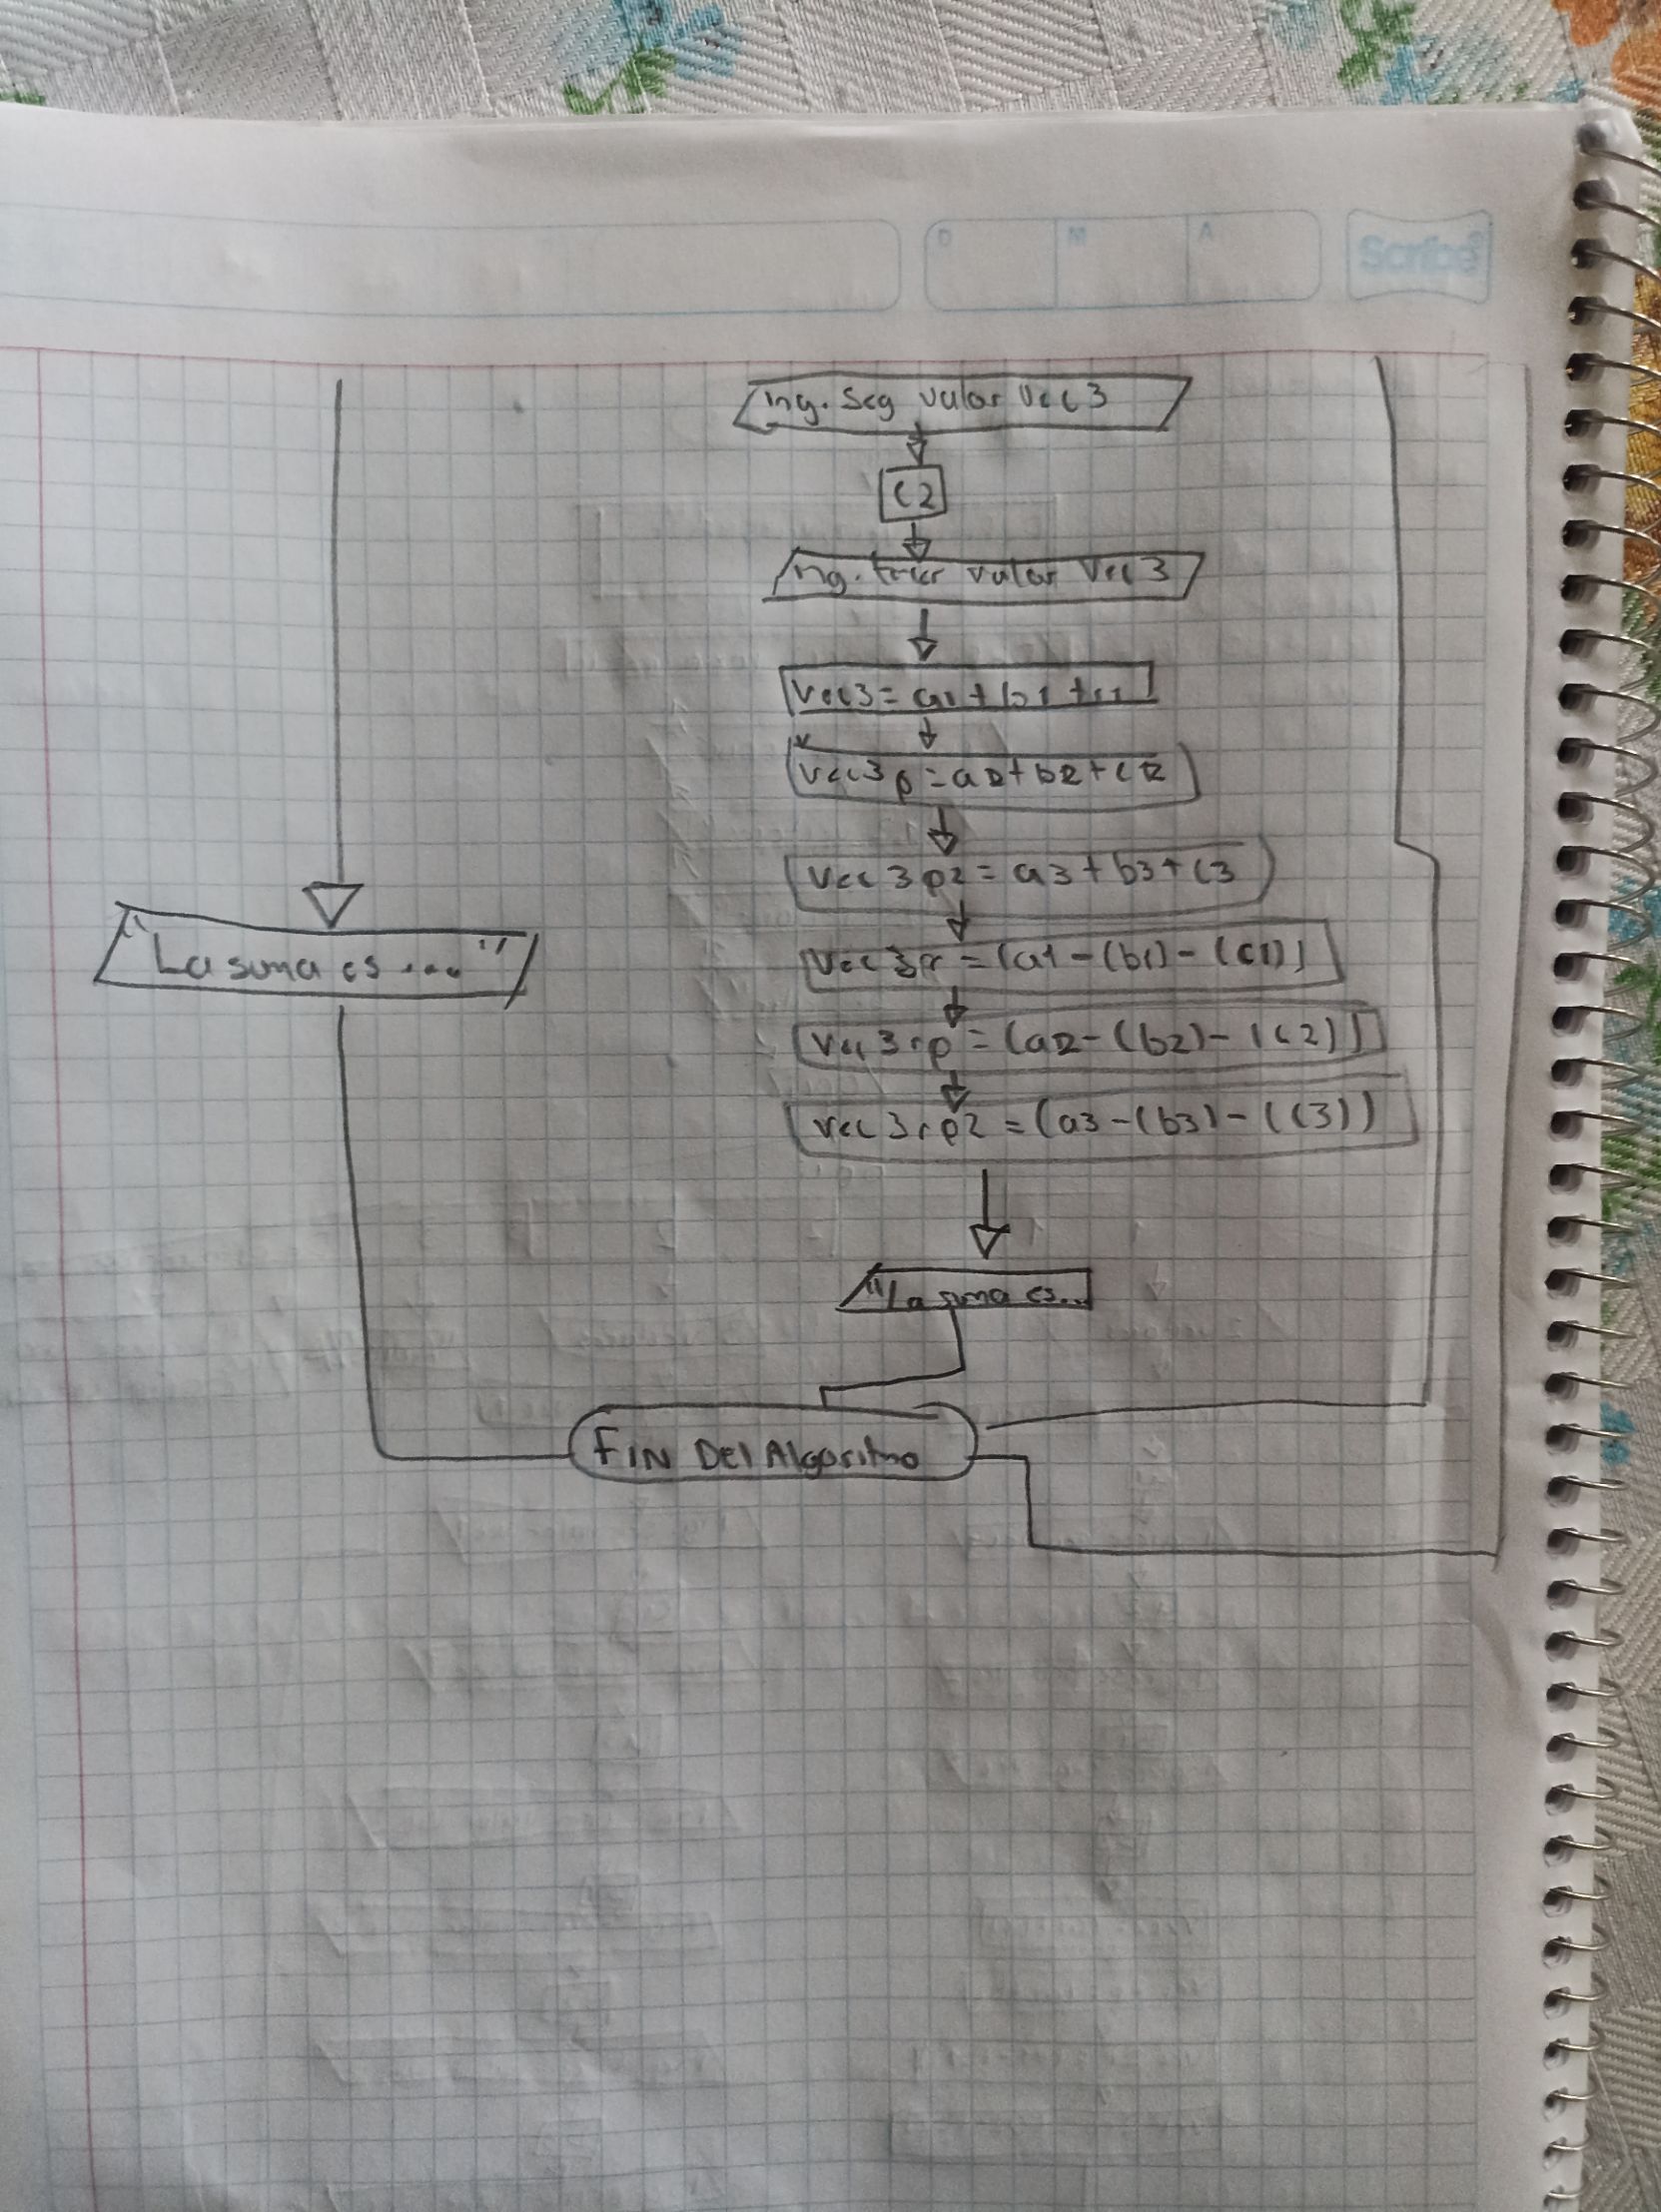 D M A Scribe
Ing. Seg valor Vec3
C2
Ing. tercer valor Vec3
Vec3 = a1 + b1 + c1
Vec3p = a2 + b2 + c2
Vec3p2 = a3 + b3 + c3
"La suma es ..."
Vec3r = (a1 - (b1) - (c1))
Vec3rp = (a2 - (b2) - (c2))
Vec3rp2 = (a3 - (b3) - (c3))
"La suma es...
FIN Del Algoritmo